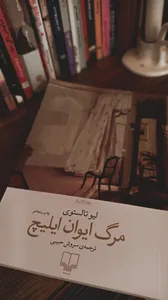 لیو تالستوی
مرگ ایوان ایلیچ
ترجمه‌ی سروش حبیبی